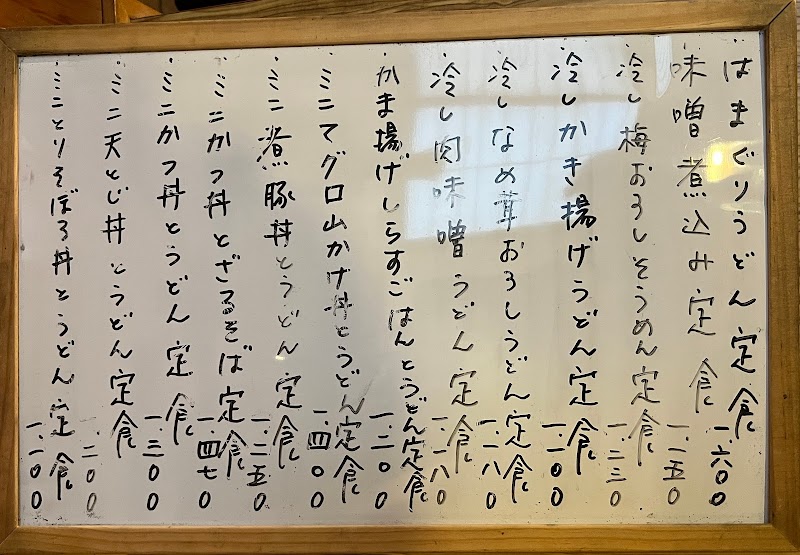 はまぐりうどん定食 一.六〇〇
味噌煮込み定食 一.一五〇
冷し梅おろしそうめん定食 一.二三〇
冷しかき揚げうどん定食 一.一〇〇
冷しなめ茸おろしうどん定食 一.一八〇
冷し肉味噌うどん定食 一.一八〇
かま揚げしらすごはんとうどん定食 一.二〇〇
ミニマグロ山かけ丼とうどん定食 一.四〇〇
ミニ煮豚丼とうどん定食 一.二五〇
ミニかつ丼とざるそば定食 一.四七〇
ミニかつ丼とうどん定食 一.三〇〇
ミニ天とじ丼とうどん定食 一.二〇〇
ミニとりそぼろ丼とうどん定食 一.一〇〇